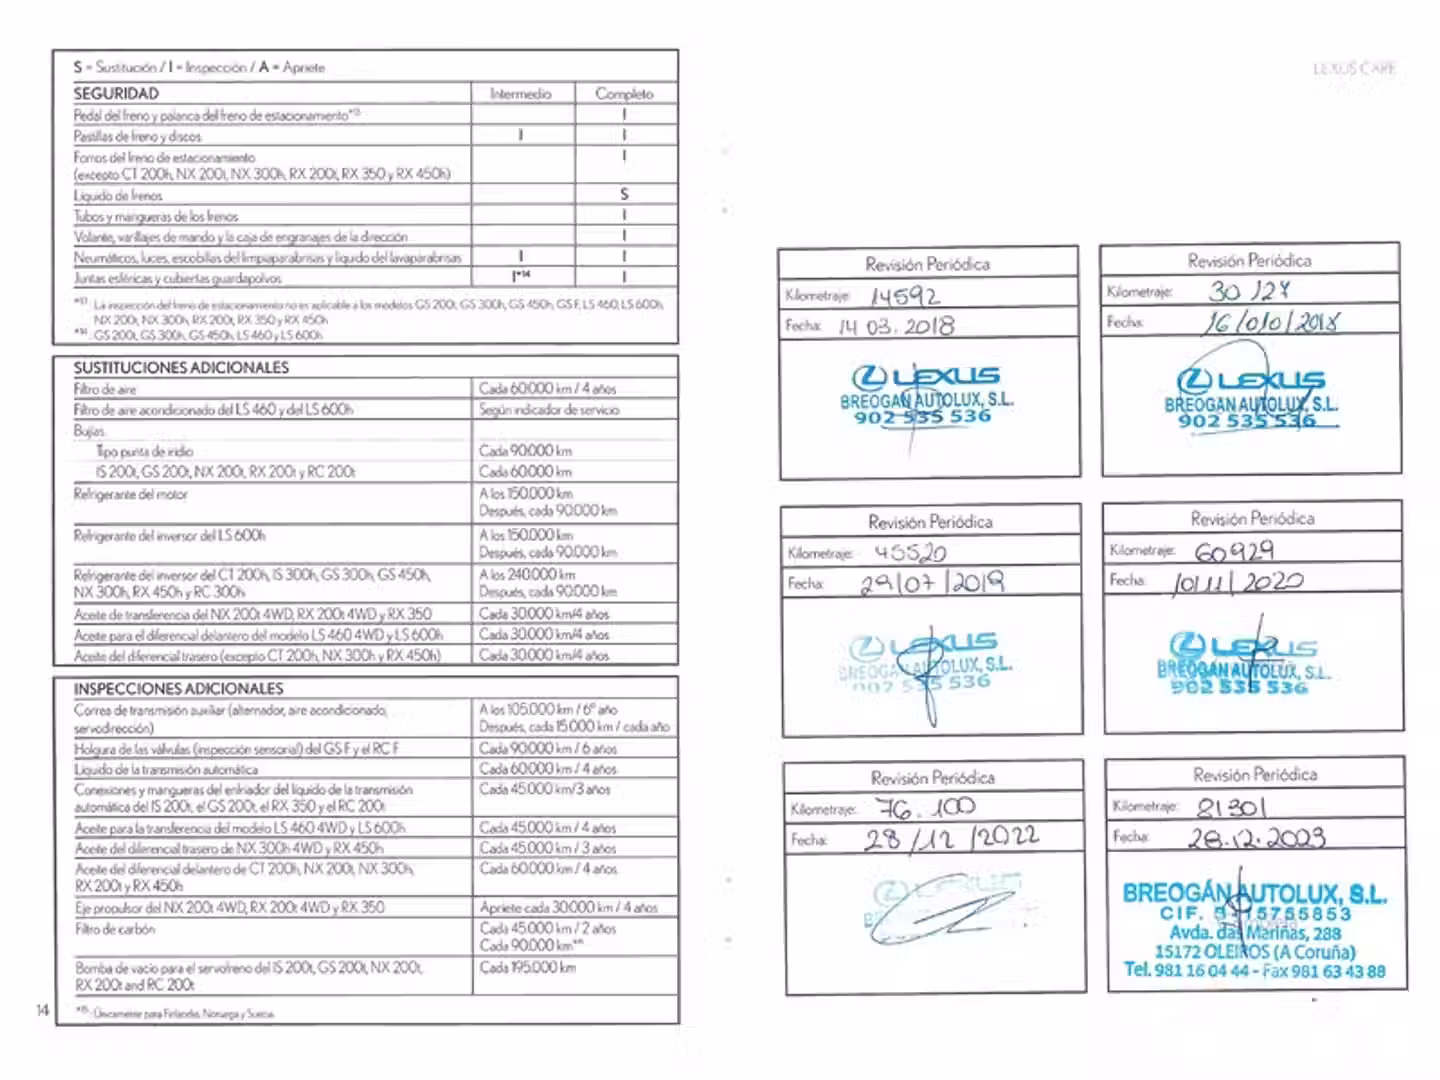 S = Sustitución / I = Inspección / A = Apriete
SEGURIDAD Intermedio Completo
Pedal del freno y palanca del freno de estacionamiento*13 I
Pastillas de freno y discos I I
Forros del freno de estacionamiento I
(excepto CT 200h, NX 200t, NX 300h, RX 200t, RX 350 y RX 450h)
Líquido de frenos S
Tubos y mangueras de los frenos I
Volante, varillajes de mando y la caja de engranajes de la dirección I
Neumáticos, luces, escobillas del limpiaparabrisas y líquido del lavaparabrisas I I
Juntas esféricas y cubiertas guardapolvos I*14 I
*13 La inspección del freno de estacionamiento no es aplicable a los modelos GS 200t, GS 300h, GS 450h, GS F, LS 460, LS 600h,
NX 200t, NX 300h, RX 200t, RX 350 y RX 450h
*14 GS 200t, GS 300h, GS 450h, LS 460 y LS 600h
SUSTITUCIONES ADICIONALES
Filtro de aire Cada 60.000 km / 4 años
Filtro de aire acondicionado del LS 460 y del LS 600h Según indicador de servicio
Bujías
Tipo punta de iridio Cada 90.000 km
IS 200t, GS 200t, NX 200t, RX 200t y RC 200t Cada 60.000 km
Refrigerante del motor A los 150.000 km
Después, cada 90.000 km
Refrigerante del inversor del LS 600h A los 150.000 km
Después, cada 90.000 km
Refrigerante del inversor del CT 200h, IS 300h, GS 300h, GS 450h, A los 240.000 km
NX 300h, RX 450h y RC 300h Después, cada 90.000 km
Aceite de transferencia del NX 200t 4WD, RX 200t 4WD y RX 350 Cada 30.000 km/4 años
Aceite para el diferencial delantero del modelo LS 460 4WD y LS 600h Cada 30.000 km/4 años
Aceite del diferencial trasero (excepto CT 200h, NX 300h y RX 450h) Cada 30.000 km/4 años
INSPECCIONES ADICIONALES
Correa de transmisión auxiliar (alternador, aire acondicionado, A los 105.000 km / 6º año
servodirección) Después, cada 15.000 km / cada año
Holgura de las válvulas (inspección sensorial) del GS F y el RC F Cada 90.000 km / 6 años
Líquido de la transmisión automática Cada 60.000 km / 4 años
Conexiones y mangueras del enfriador del líquido de la transmisión Cada 45.000 km/3 años
automática del IS 200t, el GS 200t, el RX 350 y el RC 200t
Aceite para la transferencia del modelo LS 460 4WD y LS 600h Cada 45.000 km / 4 años
Aceite del diferencial trasero de NX 300h 4WD y RX 450h Cada 45.000 km / 3 años
Aceite del diferencial delantero de CT 200h, NX 200t, NX 300h, Cada 60.000 km / 4 años
RX 200t y RX 450h
Eje propulsor del NX 200t 4WD, RX 200t 4WD y RX 350 Apriete cada 30.000 km / 4 años
Filtro de carbón Cada 45.000 km / 2 años
Cada 90.000 km*15
Bomba de vacío para el servofreno del IS 200t, GS 200t, NX 200t, Cada 195.000 km
RX 200t and RC 200t
*15: Únicamente para Finlandia, Noruega y Suecia
14
LEXUS CARE
Revisión Periódica
Kilometraje: 14592
Fecha: 14 03. 2018
LEXUS
BREOGAN AUTOLUX, S.L.
902 535 536
Revisión Periódica
Kilometraje: 30 127
Fecha: 16/010/2018
LEXUS
BREOGAN AUTOLUX, S.L.
902 535 536
Revisión Periódica
Kilometraje: 45520
Fecha: 29/07/2019
LEXUS
BREOGAN AUTOLUX, S.L.
902 535 536
Revisión Periódica
Kilometraje: 60929
Fecha: 10/11/2020
LEXUS
BREOGAN AUTOLUX, S.L.
902 535 536
Revisión Periódica
Kilometraje: 76.100
Fecha: 28/12/2022
LEXUS
Revisión Periódica
Kilometraje: 81301
Fecha: 28.12.2023
BREOGÁN AUTOLUX, S.L.
CIF. 15755853
Avda. das Mariñas, 288
15172 OLEIROS (A Coruña)
Tel. 981 16 04 44 - Fax 981 63 43 88